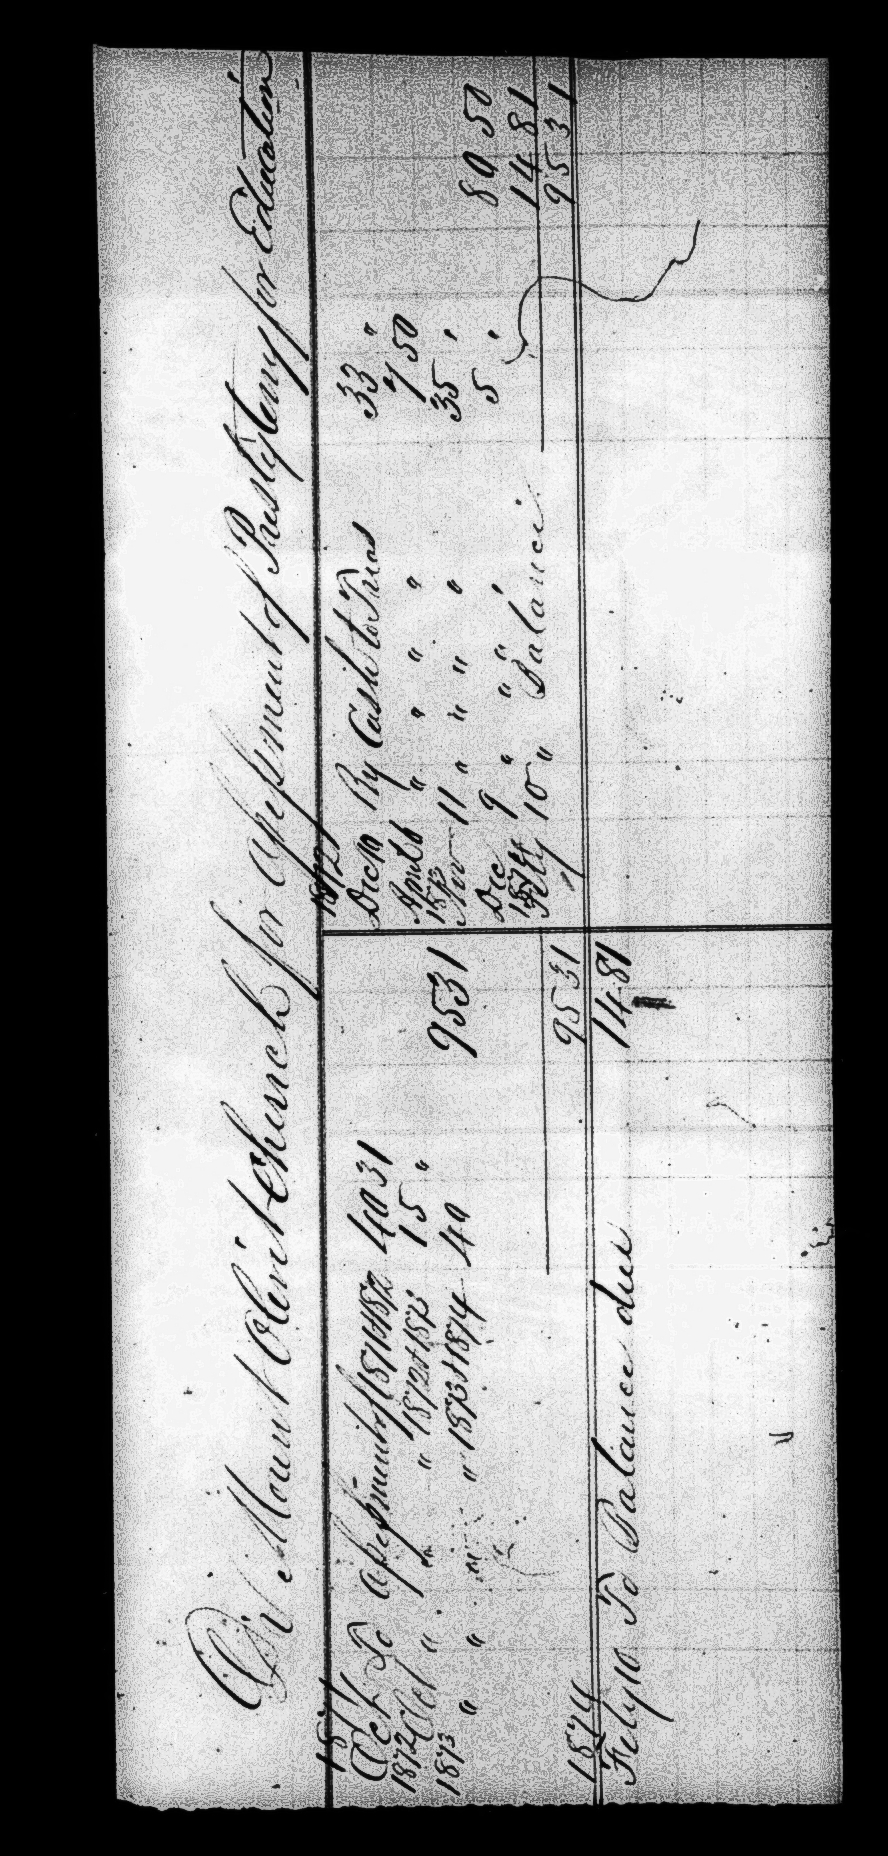 Dr Mount Olivet Church for Assessment of Presbytery for Education
1871
Oct To Assessment of 1871 & 1872 40 31
1872 Oct " " " 1872 & 1873 15 "
1873 " " " " 1873 & 1874 40 95 31
95 31
1874
Feby 10 To Balance due 14.81
1872
Dec 10 By Cash to Treas 33 "
April 6 " " " " 7 50
1873
Nov 11 " " " " 35 "
Dec 9 " " " " 5 " 80 50
1874
Feby 10 " Balance 14 81
95 31